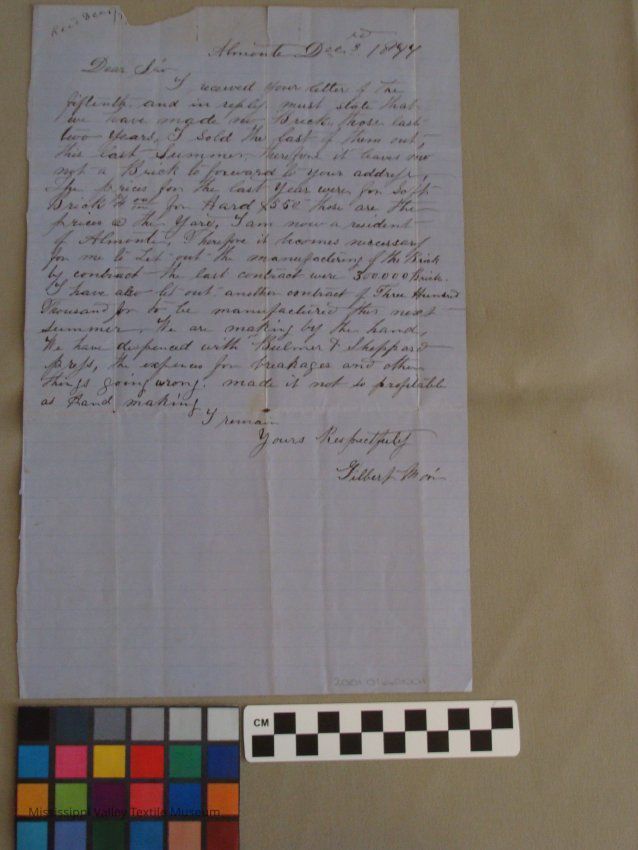 Recd Dec
Almonte Decrd 3 1877
Dear Sir
I received your letter of the
fifteenth and in reply must state that
we have made no Brick those last
two years, I sold the last of them out,
this last Summer, therefore it leaves me
not a Brick to forward to your address,
The prices for the last Year were for Soft
Brick for Hard $5.50 those are the
prices @ the Yard, I am now a resident
of Almonte, Therefore it becomes necessary
for me to Let out the manufacturing of the Brick
by contract the last contract were 300000 Brick.
I have also let out another contract of Three Hundred
Thousand for to be manufactured this next
Summer, We are making by the hand,
We have dispenced with Bulmer & Sheppard
press, the expences for breakages and other
things going wrong. made it not so profitable
as Hand making
I remain
Yours Respectfully
Gilbert
CM
Mississippi Valley Textile Museum